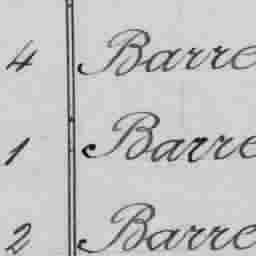 4 Barre
1 Barre
2 Barre